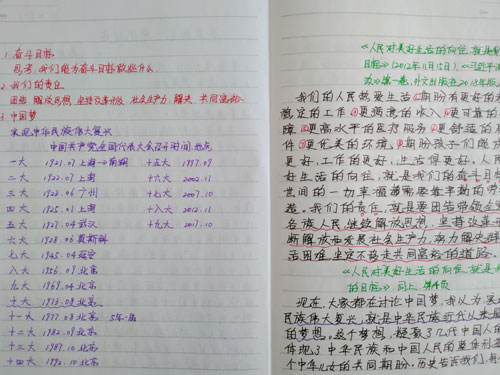 1.奋斗目标
思考:我们能为奋斗目标做些什么
2.我们的责任
团结 解放思想 坚持改革开放 社会生产力 解决 共同富裕
3.中国梦
实现中华民族伟大复兴
中国共产党全国代表大会召开时间、地点
一大 1921.07 上海→嘉兴 十五大 1997.09
二大 1922.07 上海 十六大 2002.11
三大 1923.06 广州 十七大 2007.10
四大 1925.01 上海 十八大 2012.11
五大 1927.04 武汉 十九大 2017.10
六大 1928.06 莫斯科
七大 1945.04 延安
八大 1956.09 北京
九大 1969.04 北京
十大 1973.08 北京
十一大 1977.08 北京 5年一届
十二大 1982.09 北京
十三大 1987.10 北京
十四大 1992.10 北京
《人民对美好生活的向往,就是
目标》(2012年11月15日),《习近平
政》第一卷,外文出版社2018年版,
我们的人民热爱生活①期盼有更好的
稳定的工作③更满意的收入④更可靠的
障⑤更高水平的医疗服务⑥更舒适的
件⑦更优美的环境,⑧期盼孩子们能成
更好,工作的更好,生活得更好。人民
好生活的向往,就是我们的奋斗目标
世间的一切幸福都需要靠辛勤的
造。我们的责任,就是要团结带领全
各族人民,继续解放思想,坚持改革
断解放和发展社会生产力,努力解决群
活困难,坚定不移走共同富裕的道路。
《人民对美好生活的向往,就是
的目标》,同上,第4页
现在,大家都在讨论中国梦,我以为
民族伟大复兴,就是中华民族近代以来最
的梦想。这个梦想,凝聚了几代中国人的
体现了中华民族和中国人民的整体利
个中华儿女的共同期盼。历史告诉我们,每